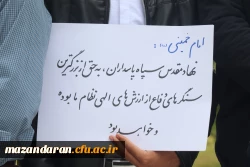 امام خمینی (ره):
نهاد مقدس سپاه پاسداران، به حق از بزرگترین
سنگرهای دفاع از ارزش های الهی نظام ما بوده
و خواهد بود
mazandaran.cfu.ac.ir